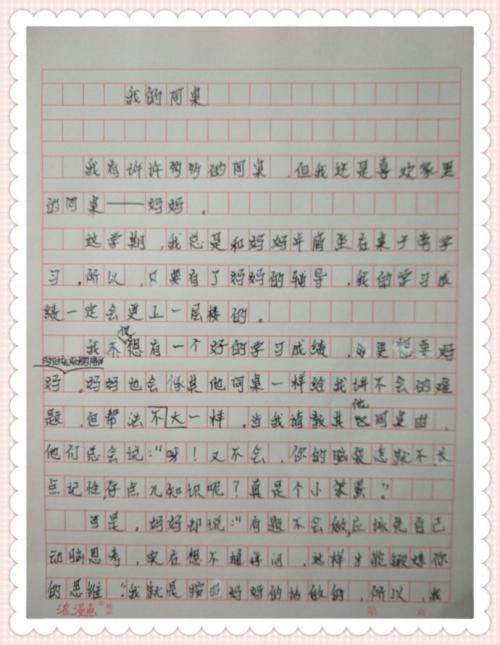 我的同桌
我有许许多多的同桌，但我还是喜欢家里
的同桌——妈妈。
这学期，我总是和妈妈并肩坐在桌子旁学
习。所以，只要有了妈妈的辅导，我的学习成
绩一定会更上一层楼的。
我不想有一个好的学习成绩，更想要好
好。妈妈也会像其他同桌一样给我讲不会的难
题，但帮法不大一样。当我请教其他同桌
他们总会说：“呀！又不会，你的脑袋怎就不长
点记性存点儿知识呢？真是个小笨蛋。”
可是，妈妈却说：“有题不会做，应该先自己
动脑思考，实在想不通再问，这样才能锻炼你
的思维。”我就是按照妈妈的做的，所以，我
浪漫色
第 页